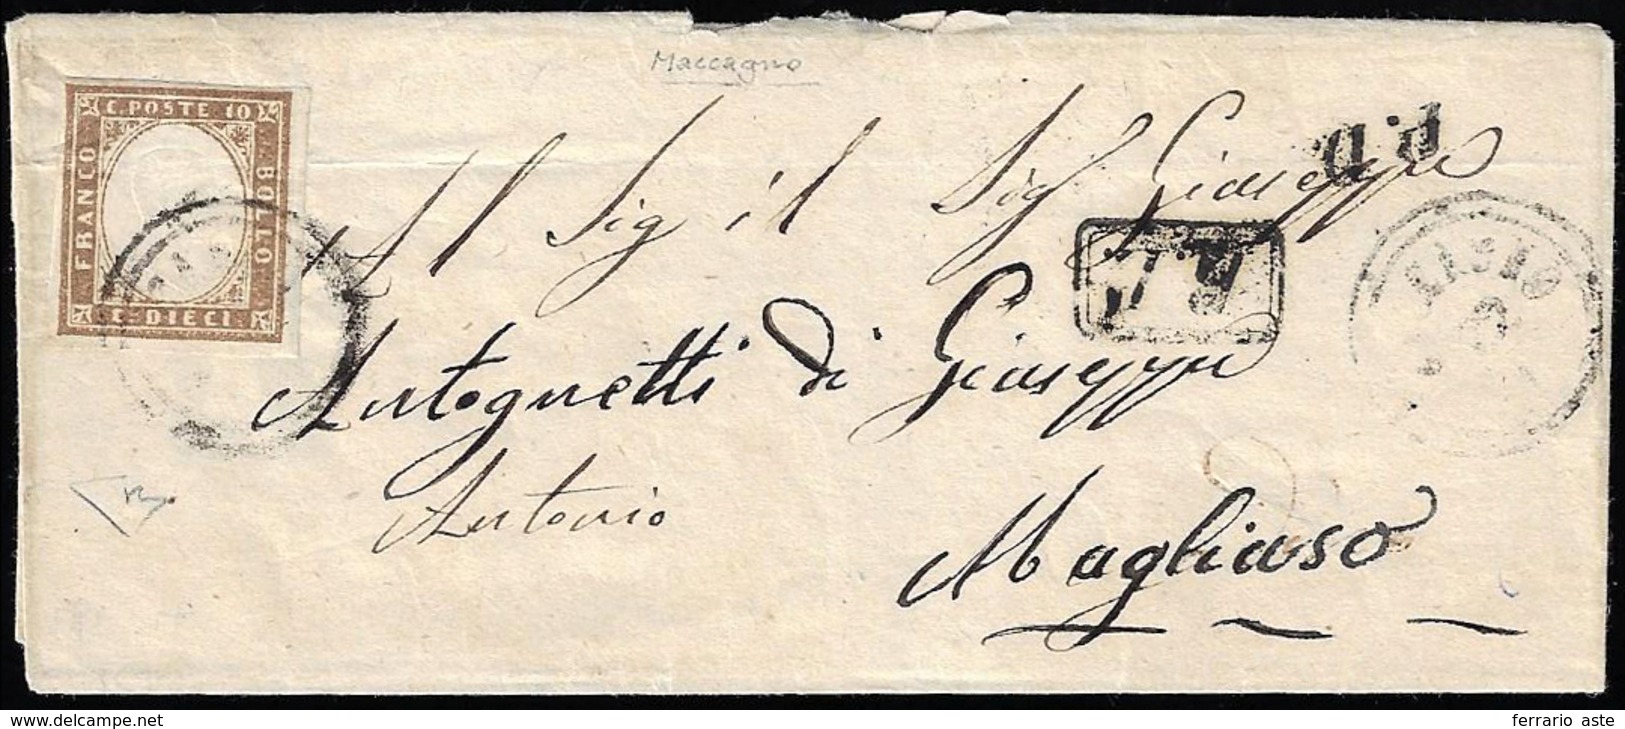 Maccagno
C. POSTE 10
FRANCO
BOLLO
C. DIECI
P.D.
Al Sig il Sig Giuseppe
Antognetti di Giuseppe
Antonio
Magliaso
www.delcampe.net
ferrario aste